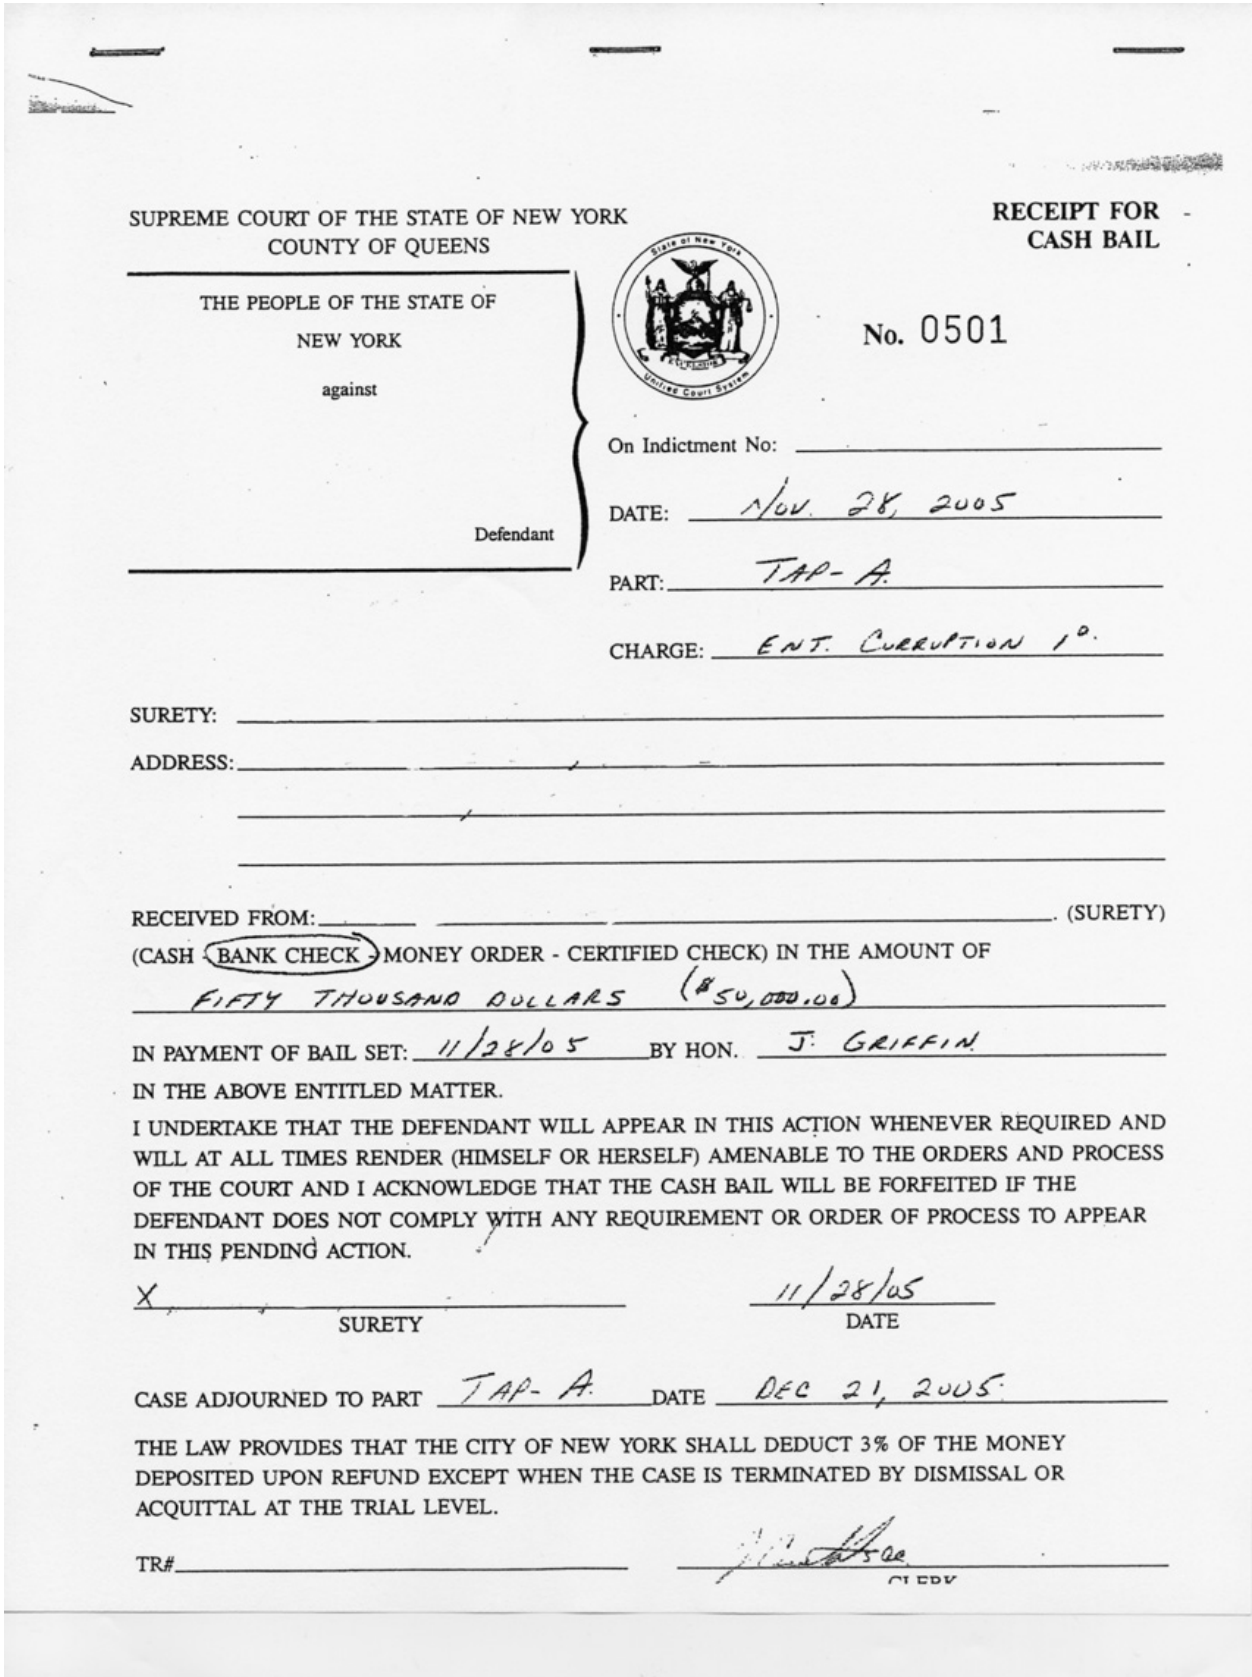 SUPREME COURT OF THE STATE OF NEW YORK
COUNTY OF QUEENS
RECEIPT FOR
CASH BAIL
THE PEOPLE OF THE STATE OF
NEW YORK
against
Defendant
State of New York
Unified Court System
No. 0501
On Indictment No:
DATE: Nov. 28, 2005
PART: TAP-A.
CHARGE: ENT. CURRUPTION 1º.
SURETY:
ADDRESS:
RECEIVED FROM: . (SURETY)
(CASH - BANK CHECK - MONEY ORDER - CERTIFIED CHECK) IN THE AMOUNT OF
FIFTY THOUSAND DOLLARS ($50,000.00)
IN PAYMENT OF BAIL SET: 11/28/05 BY HON. J. GRIFFIN
IN THE ABOVE ENTITLED MATTER.
I UNDERTAKE THAT THE DEFENDANT WILL APPEAR IN THIS ACTION WHENEVER REQUIRED AND
WILL AT ALL TIMES RENDER (HIMSELF OR HERSELF) AMENABLE TO THE ORDERS AND PROCESS
OF THE COURT AND I ACKNOWLEDGE THAT THE CASH BAIL WILL BE FORFEITED IF THE
DEFENDANT DOES NOT COMPLY WITH ANY REQUIREMENT OR ORDER OF PROCESS TO APPEAR
IN THIS PENDING ACTION.
X 11/28/05
SURETY DATE
CASE ADJOURNED TO PART TAP-A. DATE DEC 21, 2005.
THE LAW PROVIDES THAT THE CITY OF NEW YORK SHALL DEDUCT 3% OF THE MONEY
DEPOSITED UPON REFUND EXCEPT WHEN THE CASE IS TERMINATED BY DISMISSAL OR
ACQUITTAL AT THE TRIAL LEVEL.
TR#
CLERK